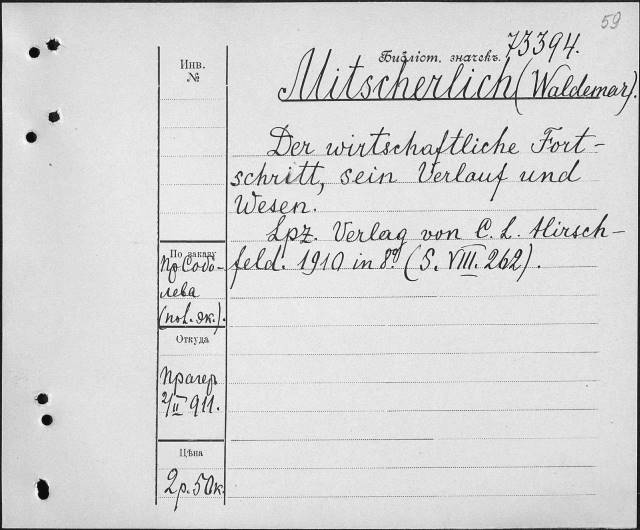 59
Инв.
№
Библіот. значекъ. 73394.
Mitscherlich (Waldemar).
Der wirtschaftliche Fort-
schritt, sein Verlauf und
Wesen.
Lpz. Verlag von C. L. Hirsch-
feld. 1910 in 8º. (S. VIII. 262).
По заказу
Пр Собо-
лева
(пол. эк.).
Откуда
Прагеръ
2/II 911.
Цѣна
2 р. 50 к.